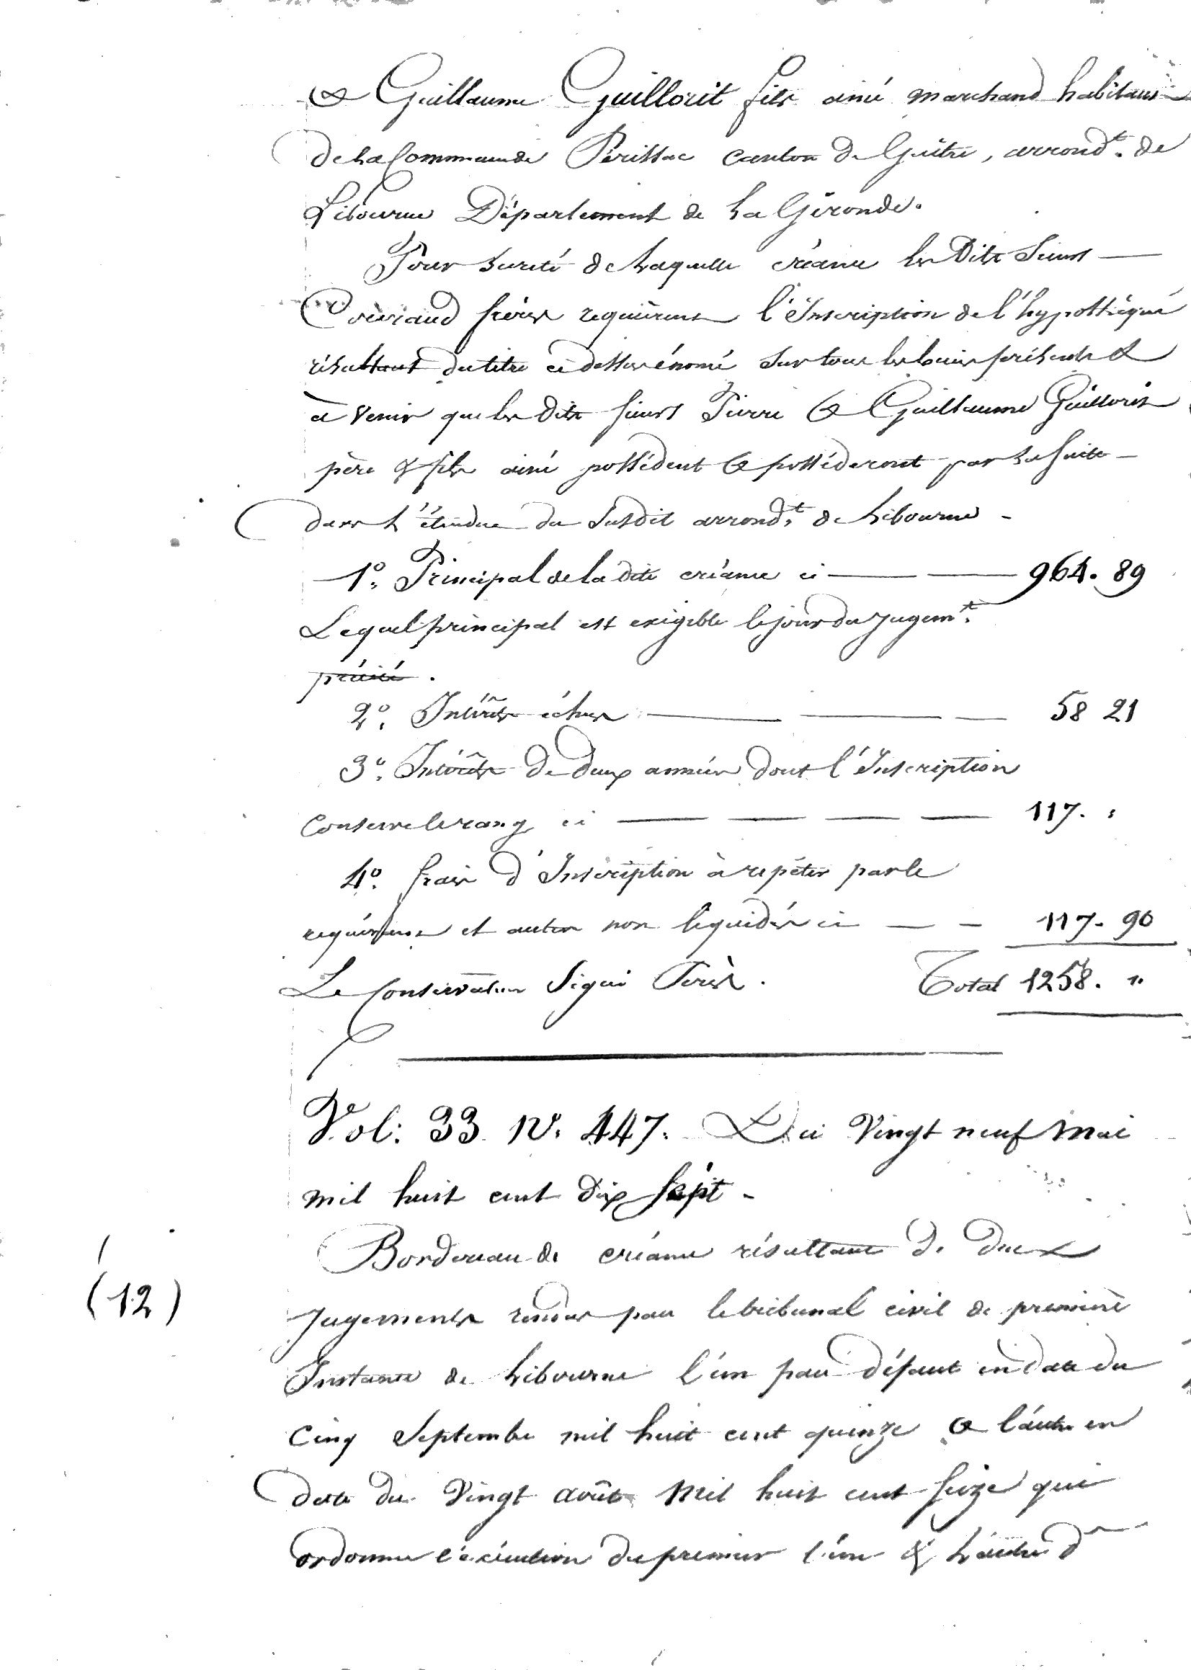 & Guillaume Guillorit fils ainé marchand habitans
de la Commune de Périssac canton de Guitre, arrondt. de
Libourne Département de la Gironde.
Pour sureté de laquelle créance les Dits Sieurs
frères requièrent l'Inscription de l'hypothèque
résultant du titre ci dessus énoncé sur tous les biens présents &
à venir que les dits sieurs Pierre & Guillaume Guillorit
père & fils ainé possèdent & posséderont par la suite
dans l'étendue du susdit arrondt. de Libourne
1o. Principal de la dite créance ci 964. 89
Lequel principal est exigible le jour du Jugemt.
précité.
2o. Intérêts échus 58 21
3o. Intérêts de deux années dont l'Inscription
conserve le rang ci 117. "
4o. frais d'Inscription à répéter par le
requérant et autres non liquidés ci 117. 90
Le Conservateur Signé Total 1258. "
Vol: 33 No. 447. Du Vingt neuf Mai
mil huit cent dix sept
(12)
Bordereau de créance résultante de deux
Jugements rendus par le tribunal civil de première
Instance de Libourne l'un par défaut en date du
cinq Septembre mil huit cent quinze & l'autre en
date du Vingt août Mil huit cent seize qui
ordonne l'exécution du premier l'un & l'autre